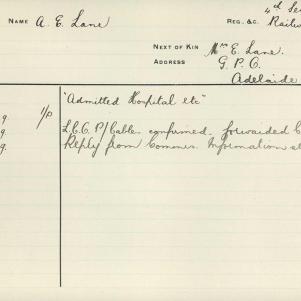 NAME A. E. Lane
REG. &C. 4th Se
Railw
NEXT OF KIN Mrs E. Lane.
ADDRESS G. P. O.
Adelaide
"Admitted Hospital etc"
9 1/P L.C.C. P/Cable confirmed. forwarded C
9. Reply from Commrs. Information